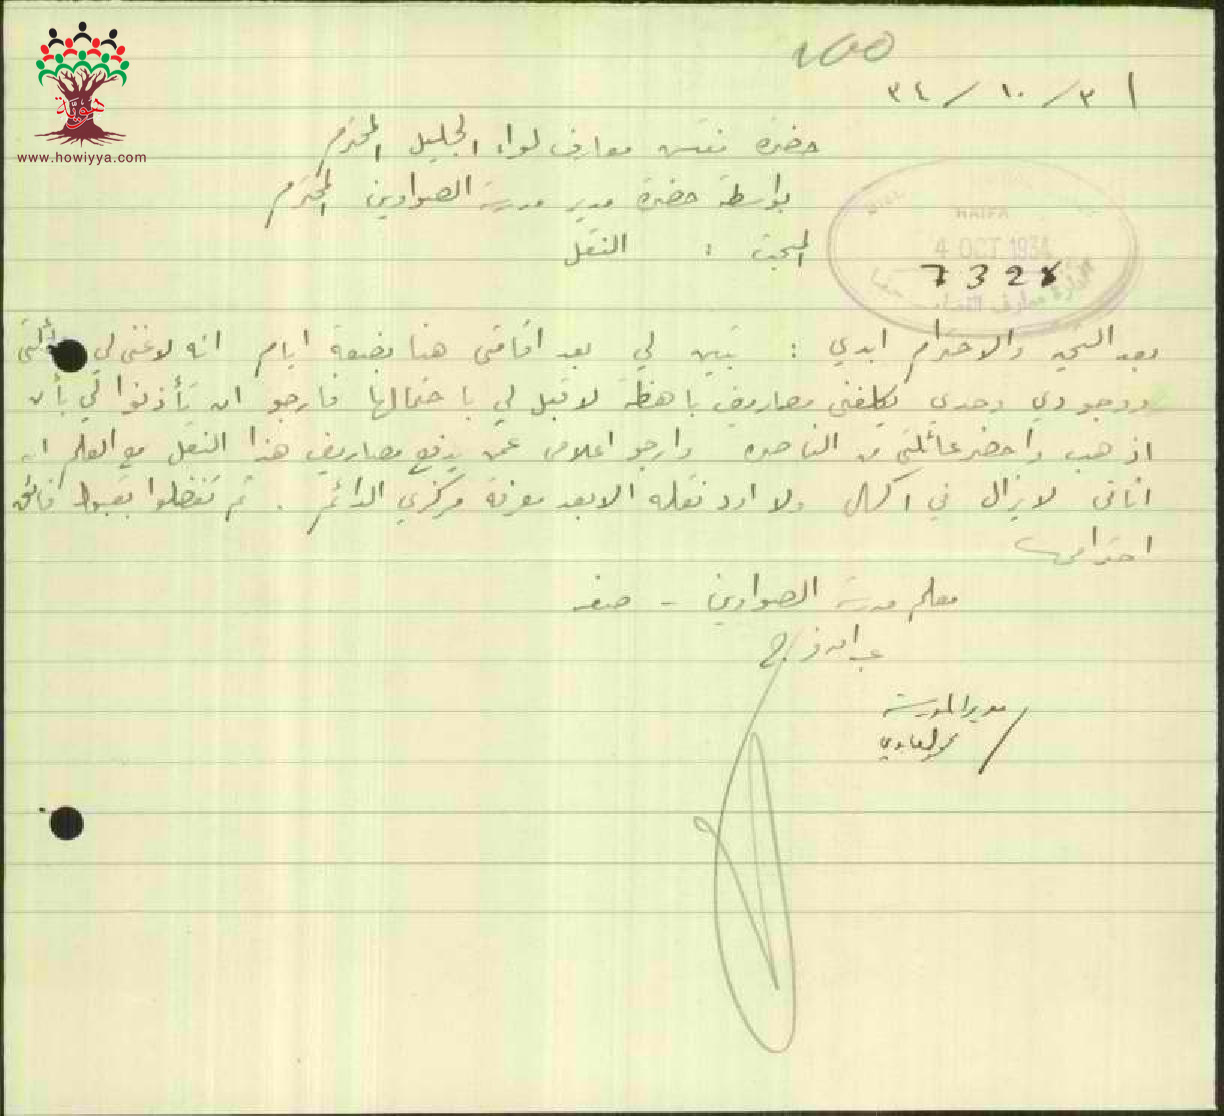 هوية
www.howiyya.com
٣٤/١٠/٣
حضرة مفتش معارف لواء الجليل المحترم
بواسطة حضرة مدير مدرسة الصواوين المحترم
المبحث : النقل
HAIFA
4 OCT 1934
7328
بعد التحية والاحترام ابدي : تبين لي بعد اقامتي هنا بضعة ايام انه لا غنى لي
ووجودي وحدي يكلفني مصاريف باهظة لا قبل لي باحتمالها فارجو ان تأذنوا لي بأن
اذهب واحضر عائلتي من الناصرة وارجو اعلامي عمن يدفع مصاريف هذا النقل مع العلم ان
اثاثي لا يزال في ولا اود نقله الا بعد معرفة مركزي الدائم . ثم تفضلوا بقبول فائق
احترامي
معلم مدرسة الصواوين - صفد
مدير المدرسة